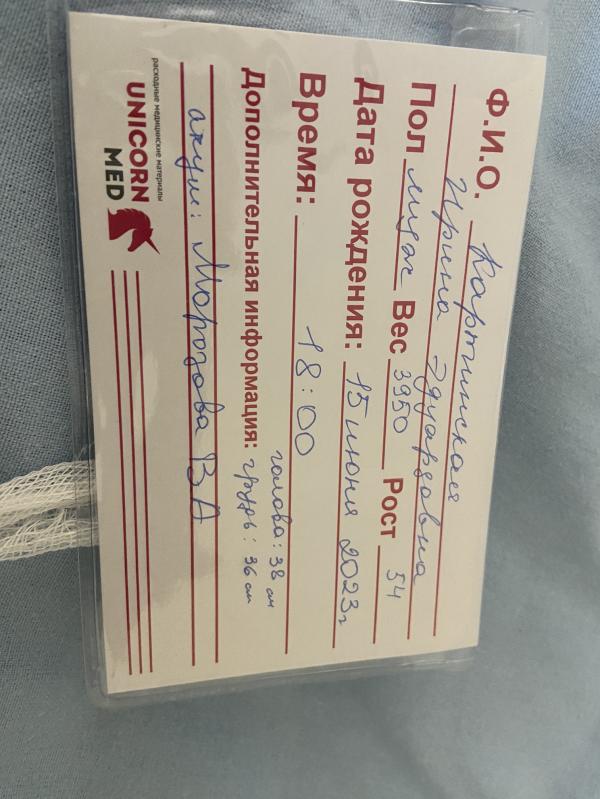 Ф.И.О. Картинская
Ирина Эдуардовна
Пол Вес 3950 Рост 54
Дата рождения: 15 июня 2023г
Время: 18:00
голова: 38 см
Дополнительная информация: грудь: 36 см
акуш: Морозова ВА
расходные медицинские материалы
UNICORN
MED